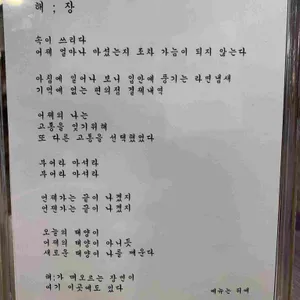 해 ; 장
속이 쓰리다
어제 얼마나 마셨는지 조차 가늠이 되지 않는다
아침에 일어나 보니 입안에 풍기는 라면냄새
기억에 없는 편의점 결제내역
어제의 나는
고통을 잊기위해
또 다른 고통을 선택했었다
부어라 마셔라
부어라 마셔라
언젠가는 끝이 나겠지
언젠가는 끝이 나겠지
오늘의 태양이
어제의 태양이 아니듯
새로운 태양이 나를 깨운다
해;가 떠오르는 장면이
여기 이곳에도 있다
메뉴는 뒤에